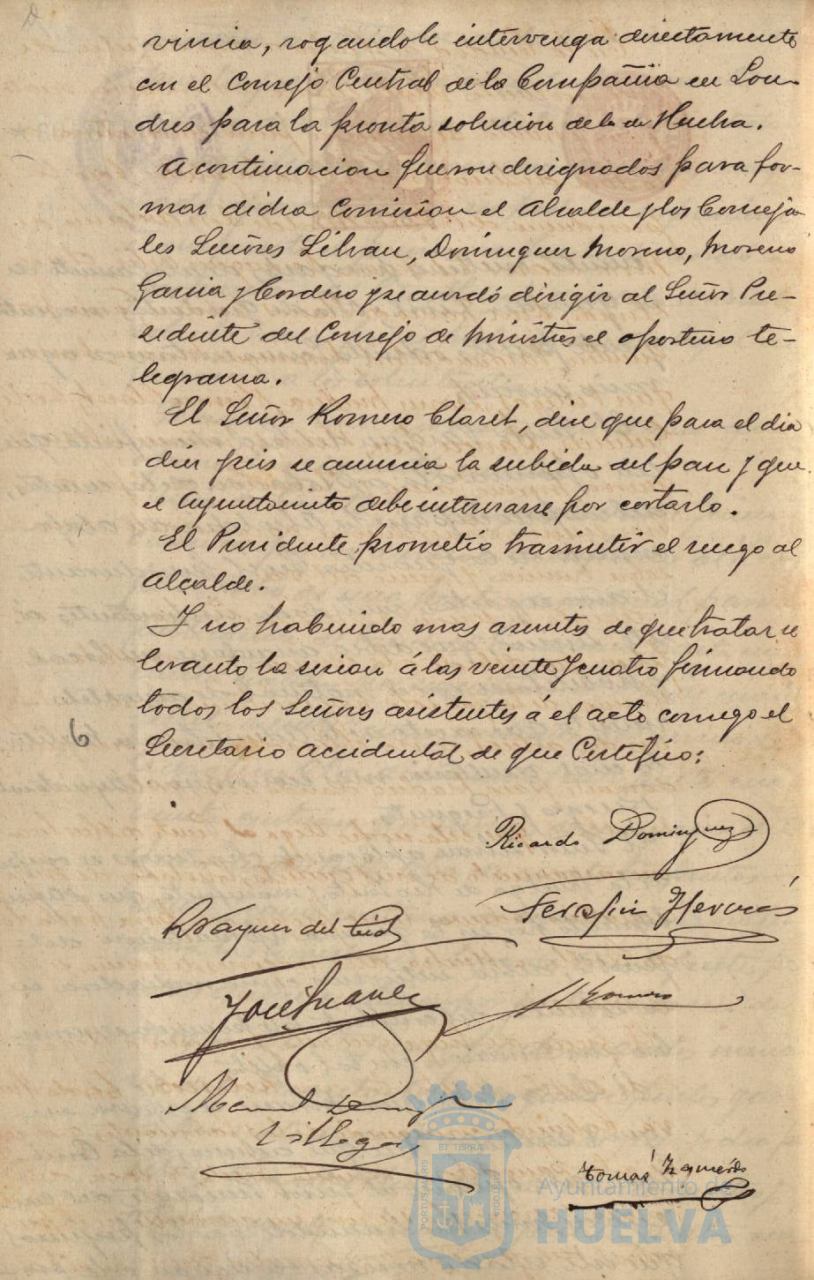 vincia, rogandole intervenga directamente
con el Consejo Central de la Compañia en Lon-
dres para la pronta solucion de la de Huelva.
A continuacion fueron designados para for-
mar dicha Comision el Alcalde y los Conceja-
les Señores Silvan, Dominguez Moreno, Moreno
Garcia y Cordero y se acordó dirigir al Señor Pre-
sidente del Consejo de Ministros el oportuno te-
legrama.
El Señor Romero Claret, dice que para el dia
diez y seis se anuncia la subida del pan y que
el Ayuntamito debe interesarse por cortarlo.
El Presidente prometio trasmitir el ruego al
Alcalde.
Y no habiendo mas asuntos de que tratar se
levanto la sesion á las veinte y cuatro firmando
todos los Señores asistentes á el acto conmigo el
Secretario accidental de que Certifico:
6
Ricardo Dominguez
Vazquez del Cid
Serafin
José Suarez
Romero
Manuel
Villegas
Tomás Izquierdo
PORTUS MARIS
ET TERRAE
CUSTODIA
Ayuntamiento de
HUELVA